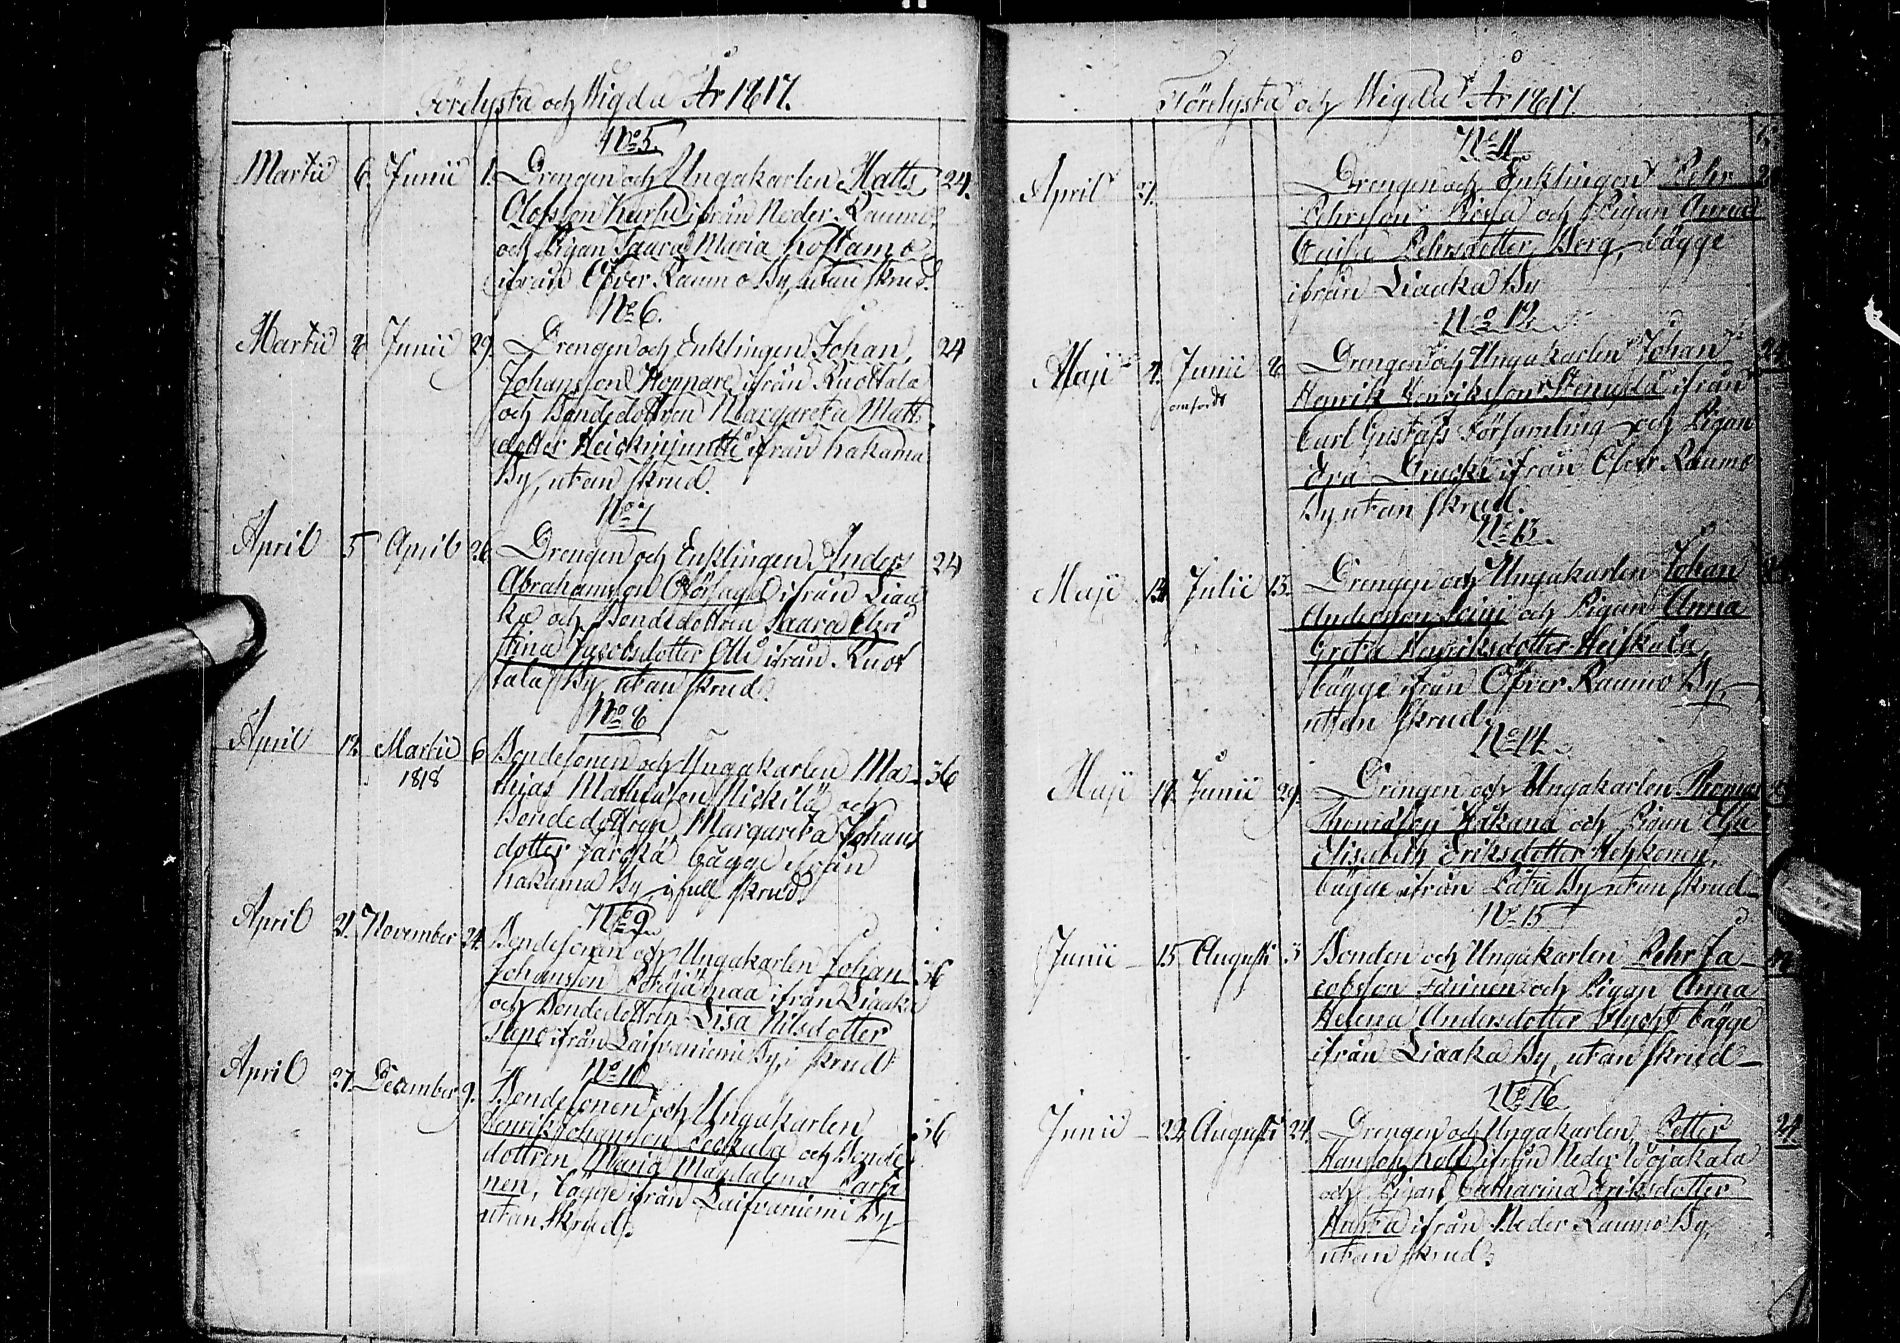 Förelysta och Wigda År 1817.
No 5
Martii 6. Junii 1. Drengen och Ungakarlen Matts 24.
Olofsson Kurtti ifrån Neder Raumo
och Pigan Saara Maria
ifrån Öfver Raumo By, utan skrud.
No 6.
Martii Junii 29. Drengen och Enklingen Johan 24
Johansson Hoppare ifrån Kuottala
och Bondedottren Margareta Matts
dotter ifrån Kakama
By, utan skrud.
No 7
April 5 April 26 Drengen och Enklingen Anders 24
Abrahamsson ifrån Liaa
ka och Bondedottren Saara Chri
stina Jacobsdotter Olli ifrån Kuot
tala By utan skrud.
No 8
April 12. Martii 6 Bondesonen och Ungakarlen Ma 36
1818
thias Mathiasson Nickilä och
Bondedottren Margareta Johans
dotter bägge ifrån
Kakama By i full skrud.
No 9
April 21. November 24. Bondesonen och Ungakarlen Johan 36
Johansson ifrån Liaaka
och Bondedottren Lisa Nilsdotter
ifrån Laifvaniemi By, i skrud
No 10
April 27. December 9. Bondesonen och Ungakarlen 36
Henrik Johansson och Bonde
dottren Maria Magdalena
nen, bägge ifrån Laifvaniemi By
utan skrud.
Förelysta och Wigda År 1817.
No 11
April 27. Drengen och Enklingen Pehr
Pehrsson och Pigan Anna
Caisa Pehrsdotter Berg, bägge
ifrån Liaaka By
No 12
Maji 4. Junii Drengen och Ungakarlen Johan 24
Henrik Henriksson ifrån
Carl Gustafs Församling och Pigan
ifrån Öfver Raumo
By utan skrud.
No 13
Maji Julii 13. Drengen och Ungakarlen Johan
Andersson och Pigan Anna
Greta Henriksdotter Heiskala
bägge ifrån Öfver Raumo By,
utan skrud.
No 14
Maji Junii 29. Drengen och Ungakarlen Thomas
Thomasson Kakana och Pigan
Elisabeth Eriksdotter
bägge ifrån By utan skrud
No 15
Junii 15 Augusti 3 Bonden och Ungakarlen Pehr Ja
cobsson och Pigan Anna
Helena Andersdotter Nycht bägge
ifrån Liaaka By, utan skrud
No 16
Junii 22 Augusti 24. Drengen och Ungakarlen Petter 24.
Hansson ifrån Neder Wojakala
och Pigan Catharina Eriksdotter
ifrån Neder Raumo By,
utan skrud.